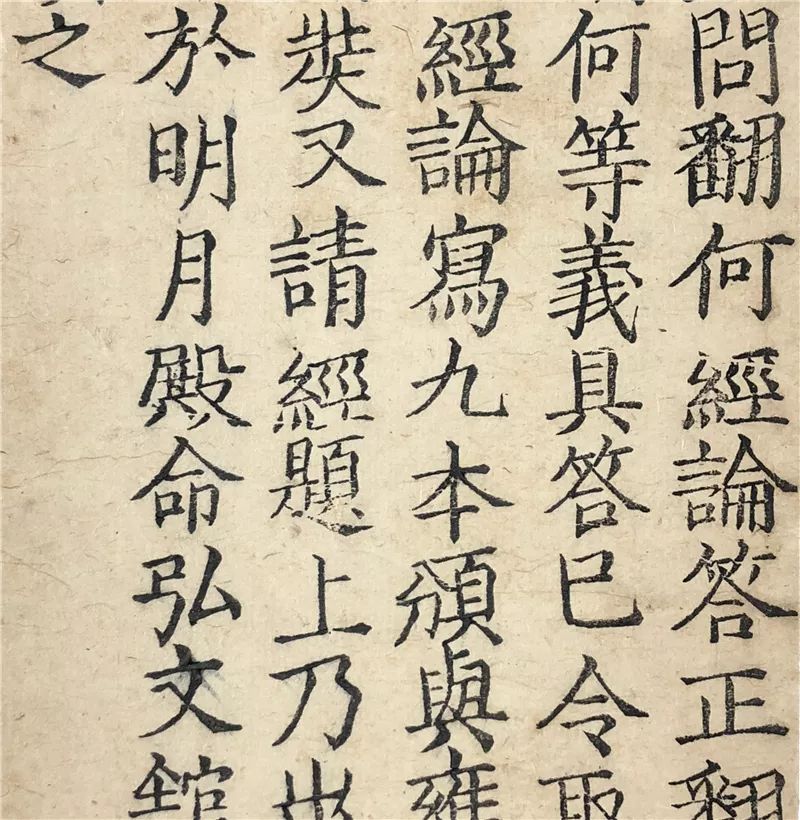 問翻何經論答正翻
何等義具答巳令取
經論寫九本頒與雍
奘又請經題上乃出
於明月殿命弘文館
之